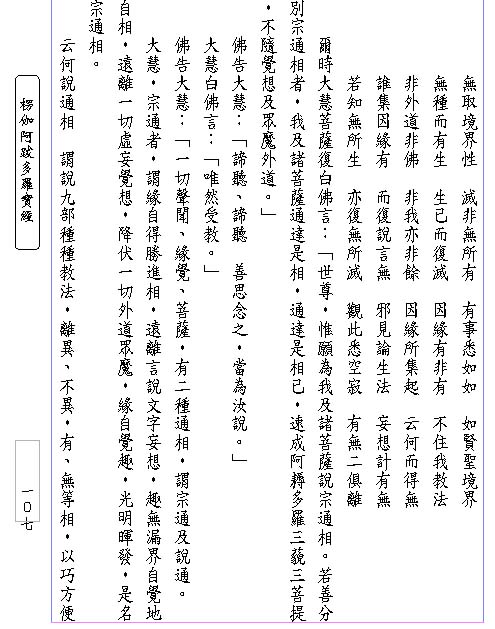 無取境界性　滅非無所有　有事悉如如　如賢聖境界
無種而有生　生已而復滅　因緣有非有　不住我教法
非外道非佛　非我亦非餘　因緣所集起　云何而得無
誰集因緣有　而復說言無　邪見論生法　妄想計有無
若知無所生　亦復無所滅　觀此悉空寂　有無二俱離
爾時大慧菩薩復白佛言：「世尊，惟願為我及諸菩薩說宗通相。若善分
別宗通相者，我及諸菩薩通達是相，通達是相已，速成阿耨多羅三藐三菩提
，不隨覺想及眾魔外道。」
佛告大慧：「諦聽、諦聽　善思念之，當為汝說。」
大慧白佛言：「唯然受教。」
佛告大慧：「一切聲聞、緣覺、菩薩，有二種通相，謂宗通及說通。
大慧，宗通者，謂緣自得勝進相，遠離言說文字妄想，趣無漏界自覺地
自相，遠離一切虛妄覺想，降伏一切外道眾魔，緣自覺趣，光明暉發，是名
宗通相。
云何說通相　謂說九部種種教法，離異、不異，有、無等相，以巧方便
楞伽阿跋多羅寶經
一０七